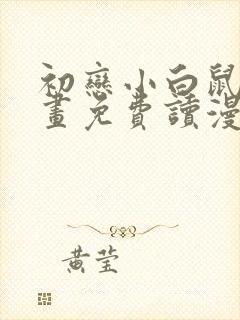 初戀小白鼠
畫免費讀漫
黃莹